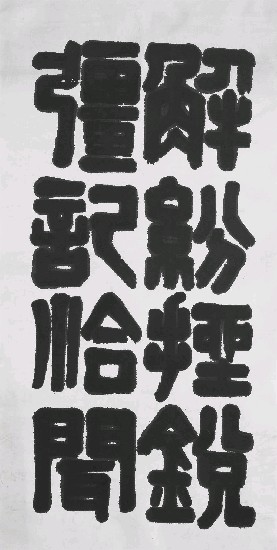 解紛挫銳
彊記洽聞